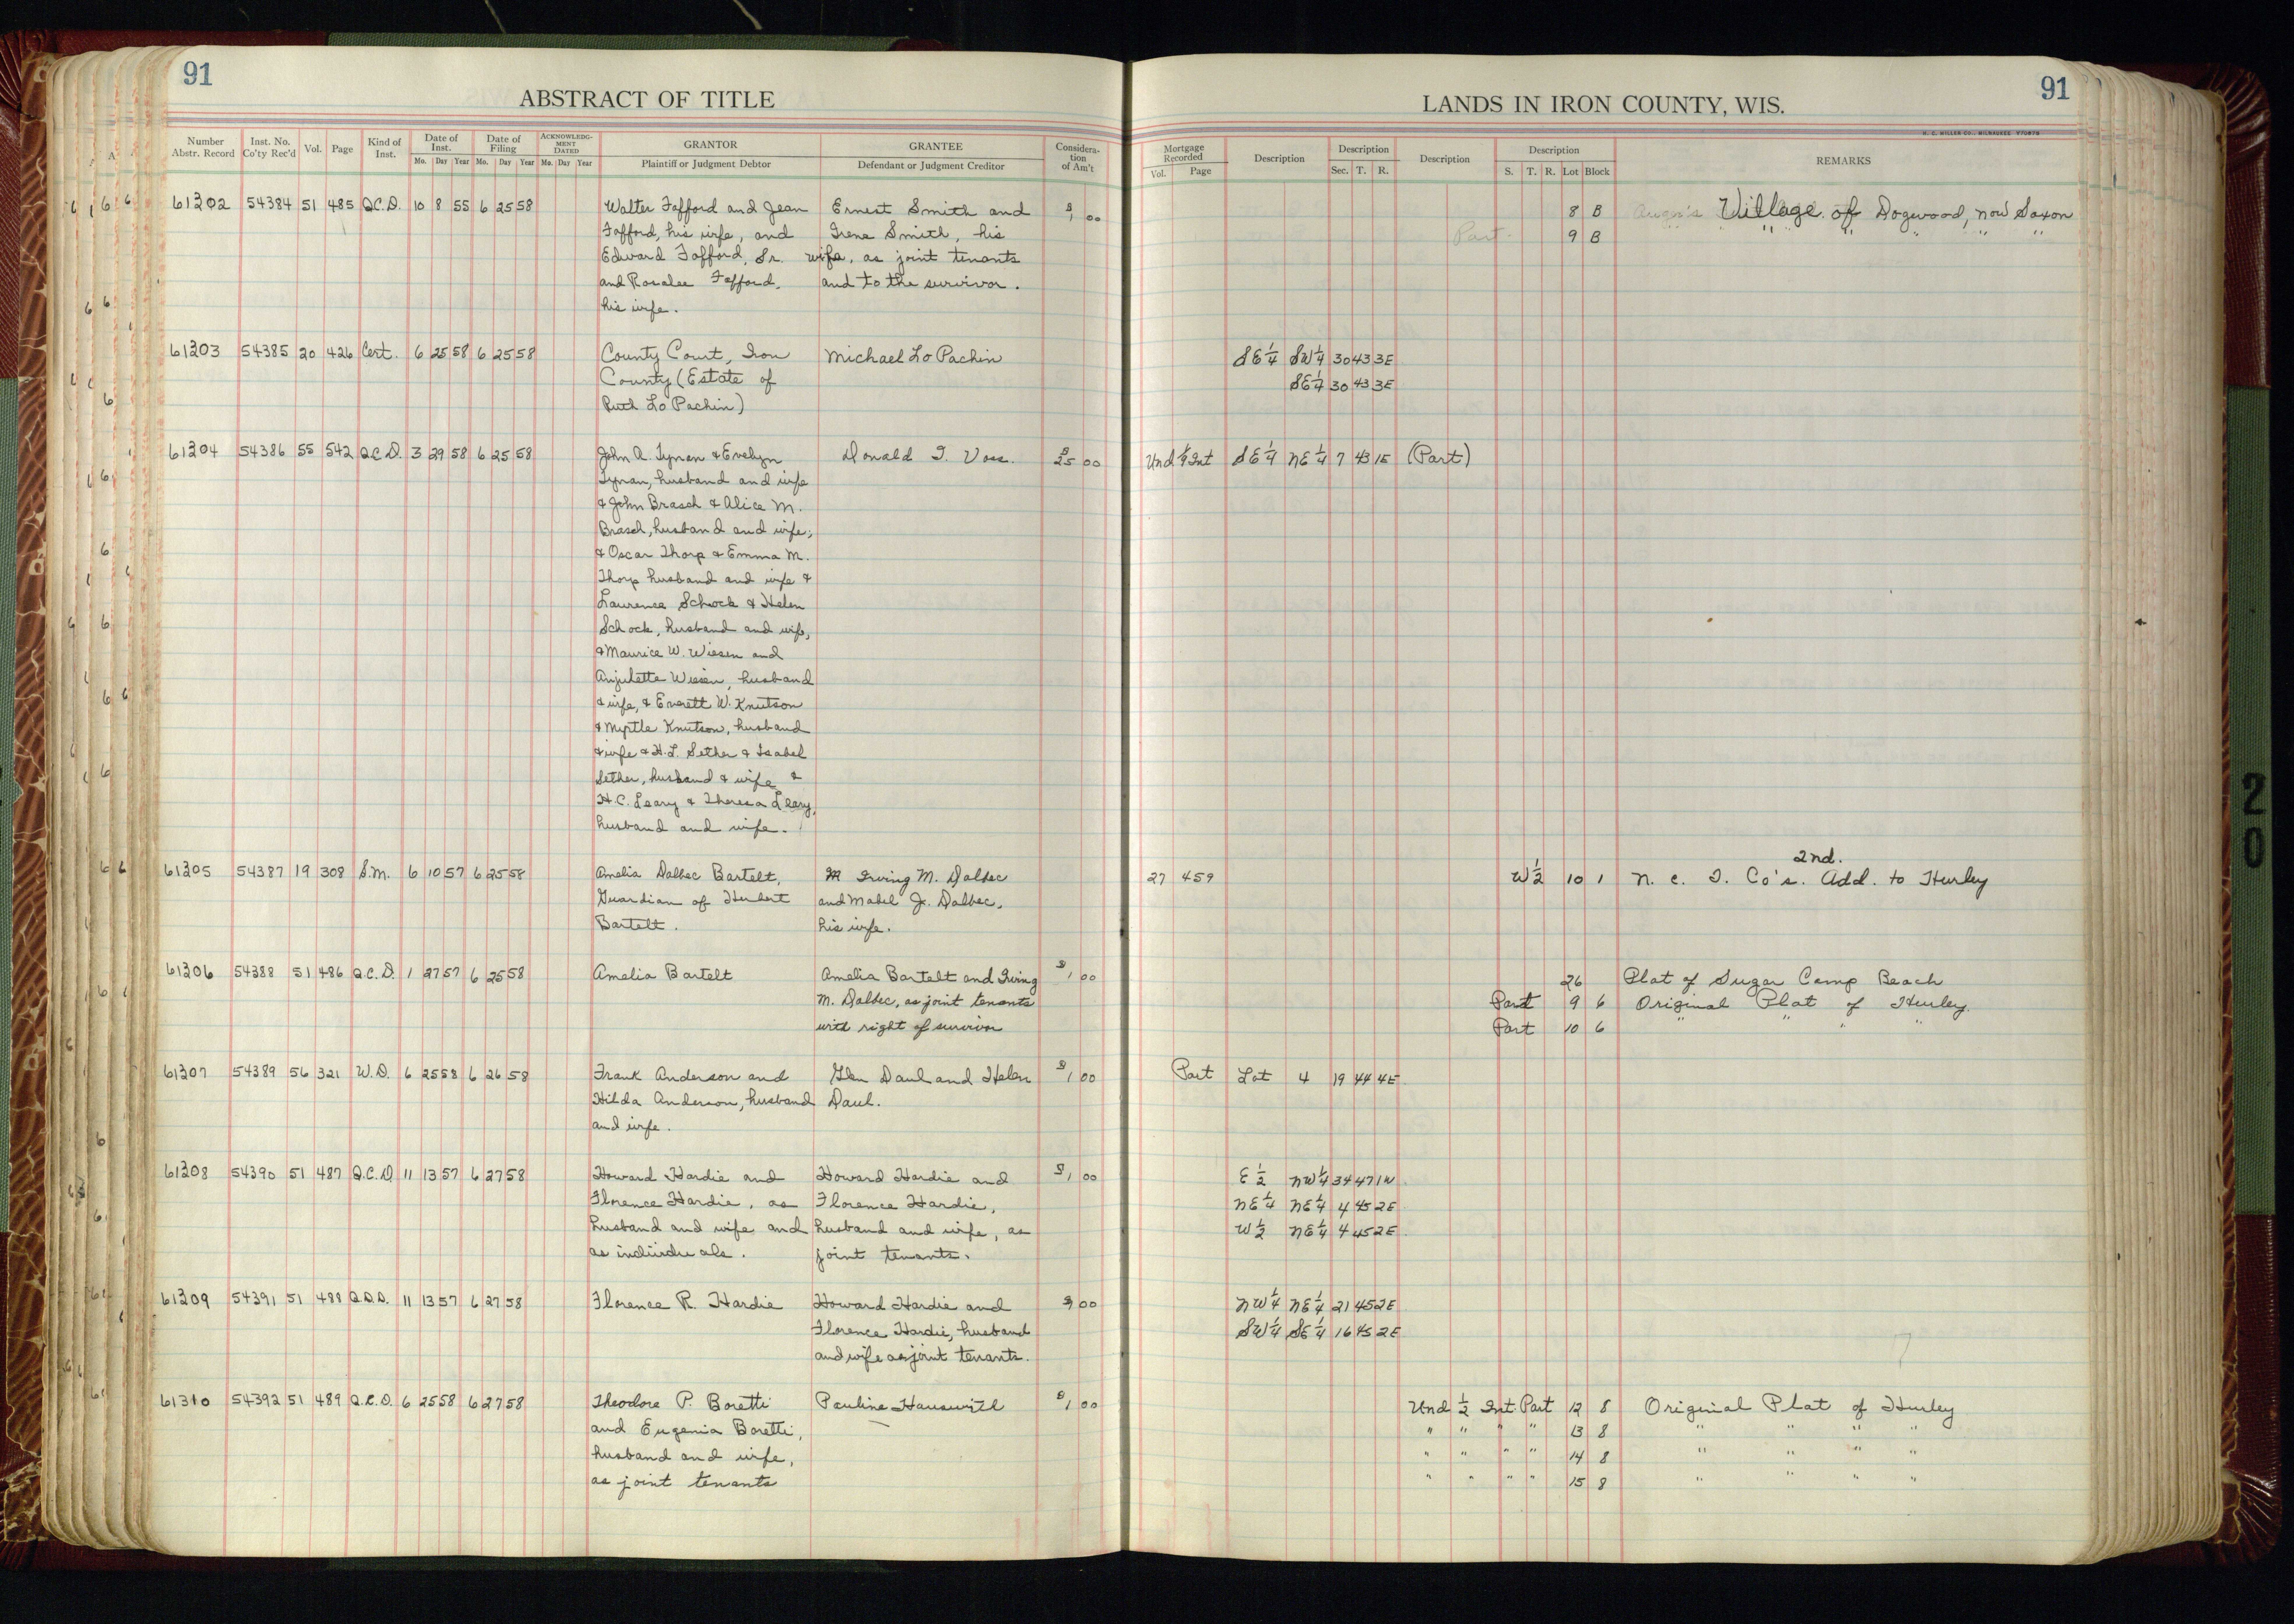 91
ABSTRACT OF TITLE
Number Abstr. Record Inst. No. Co'ty Rec'd Vol. Page Kind of Inst. Date of Inst. Mo. Day Year Date of Filing Mo. Day Year ACKNOWLEDGMENT DATED Mo. Day Year GRANTOR Plaintiff or Judgment Debtor GRANTEE Defendant or Judgment Creditor Consideration of Am't
61302 54384 51 485 Q.C.D. 10 8 55 6 25 58 Walter Fafford and Jean Ernest Smith and $1 00
Fafford, his wife, and Irene Smith, his
Edward Fafford, Sr. wife, as joint tenants
and Rosalee Fafford, and to the survivor.
his wife.
61303 54385 20 426 Cert. 6 25 58 6 25 58 County Court, Iron Michael Lo Pachin
County (Estate of
Ruth Lo Pachin)
61304 54386 55 542 Q.C.D. 3 29 58 6 25 58 John A. Tynan & Evelyn Donald I. Voss. $25 00
Tynan, husband and wife
& John Brasch & Alice M.
Brasch, husband and wife,
& Oscar Thorp & Emma M.
Thorp husband and wife &
Laurence Schock & Helen
Schock, husband and wife,
& Maurice W. Wiesen and
Anjulette Wiesen, husband
& wife, & Everett W. Knutson
& Myrtle Knutson, husband
& wife & H.L. Sether & Isabel
Sether, husband & wife &
H.C. Leary & Theresa Leary,
husband and wife.
61305 54387 19 308 S.M. 6 10 57 6 25 58 Amelia Dalbec Bartelt, Irving M. Dalbec
Guardian of Herbert and Mabel J. Dalbec,
Bartelt. his wife.
61306 54388 51 486 Q.C.D. 1 27 57 6 25 58 Amelia Bartelt Amelia Bartelt and Irving $1 00
M. Dalbec, as joint tenants
with right of survivor
61307 54389 56 321 W.D. 6 25 58 6 26 58 Frank Anderson and Glen Daul and Helen $1 00
Hilda Anderson, husband Daul.
and wife.
61308 54390 51 487 Q.C.D. 11 13 57 6 27 58 Howard Hardie and Howard Hardie and $1 00
Florence Hardie, as Florence Hardie,
husband and wife and husband and wife, as
as individuals. joint tenants.
61309 54391 51 488 Q.D.D. 11 13 57 6 27 58 Florence R. Hardie Howard Hardie and 00
Florence Hardie, husband
and wife as joint tenants.
61310 54392 51 489 Q.C.D. 6 25 58 6 27 58 Theodore P. Boretti Pauline Hauswirth $1 00
and Eugenia Boretti,
husband and wife,
as joint tenants
91
LANDS IN IRON COUNTY, WIS.
H. C. MILLER CO., MILWAUKEE V70878
Mortgage Recorded Vol. Page Description Description Sec. T. R. Description Description S. T. R. Lot Block REMARKS
8 B Village of Dogwood, now Saxon
Part 9 B " " " " "
SE 1/4 SW 1/4 30 43 3E
SE 1/4 30 43 3E
Und 1/9 Int SE 1/4 NE 1/4 7 43 1E (Part)
2nd.
27 459 W 1/2 10 1 N. C. I. Co's. Add. to Hurley
26 Plat of Sugar Camp Beach
Part 9 6 Original Plat of Hurley
Part 10 6 " " " "
Part Lot 4 19 44 4E
E 1/2 NW 1/4 34 47 1W
NE 1/4 NE 1/4 4 45 2E
W 1/2 NE 1/4 4 45 2E
NW 1/4 NE 1/4 21 45 2E
SW 1/4 SE 1/4 16 45 2E
Und 1/2 Int Part 12 8 Original Plat of Hurley
" " " " 13 8 " " " "
" " " " 14 8 " " " "
" " " " 15 8 " " " "
20